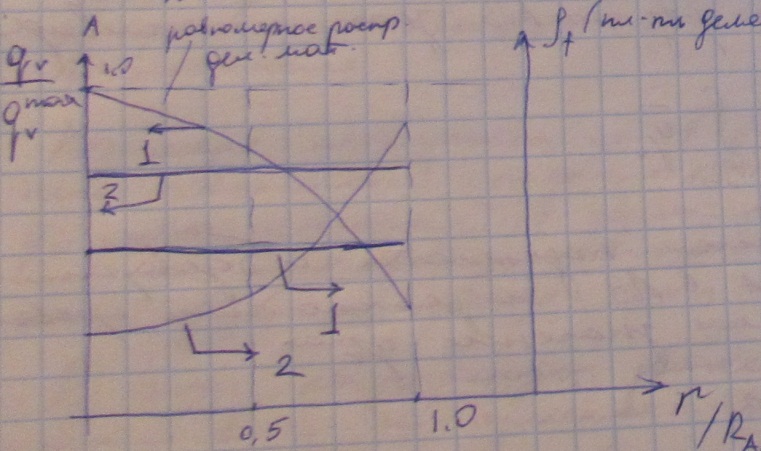 A
равномерное распр.
дел. мат.
q_v
q_v^max
1.0
ρ_f (пл-пл деле
1
2
1
2
0,5
1.0
r/R_A